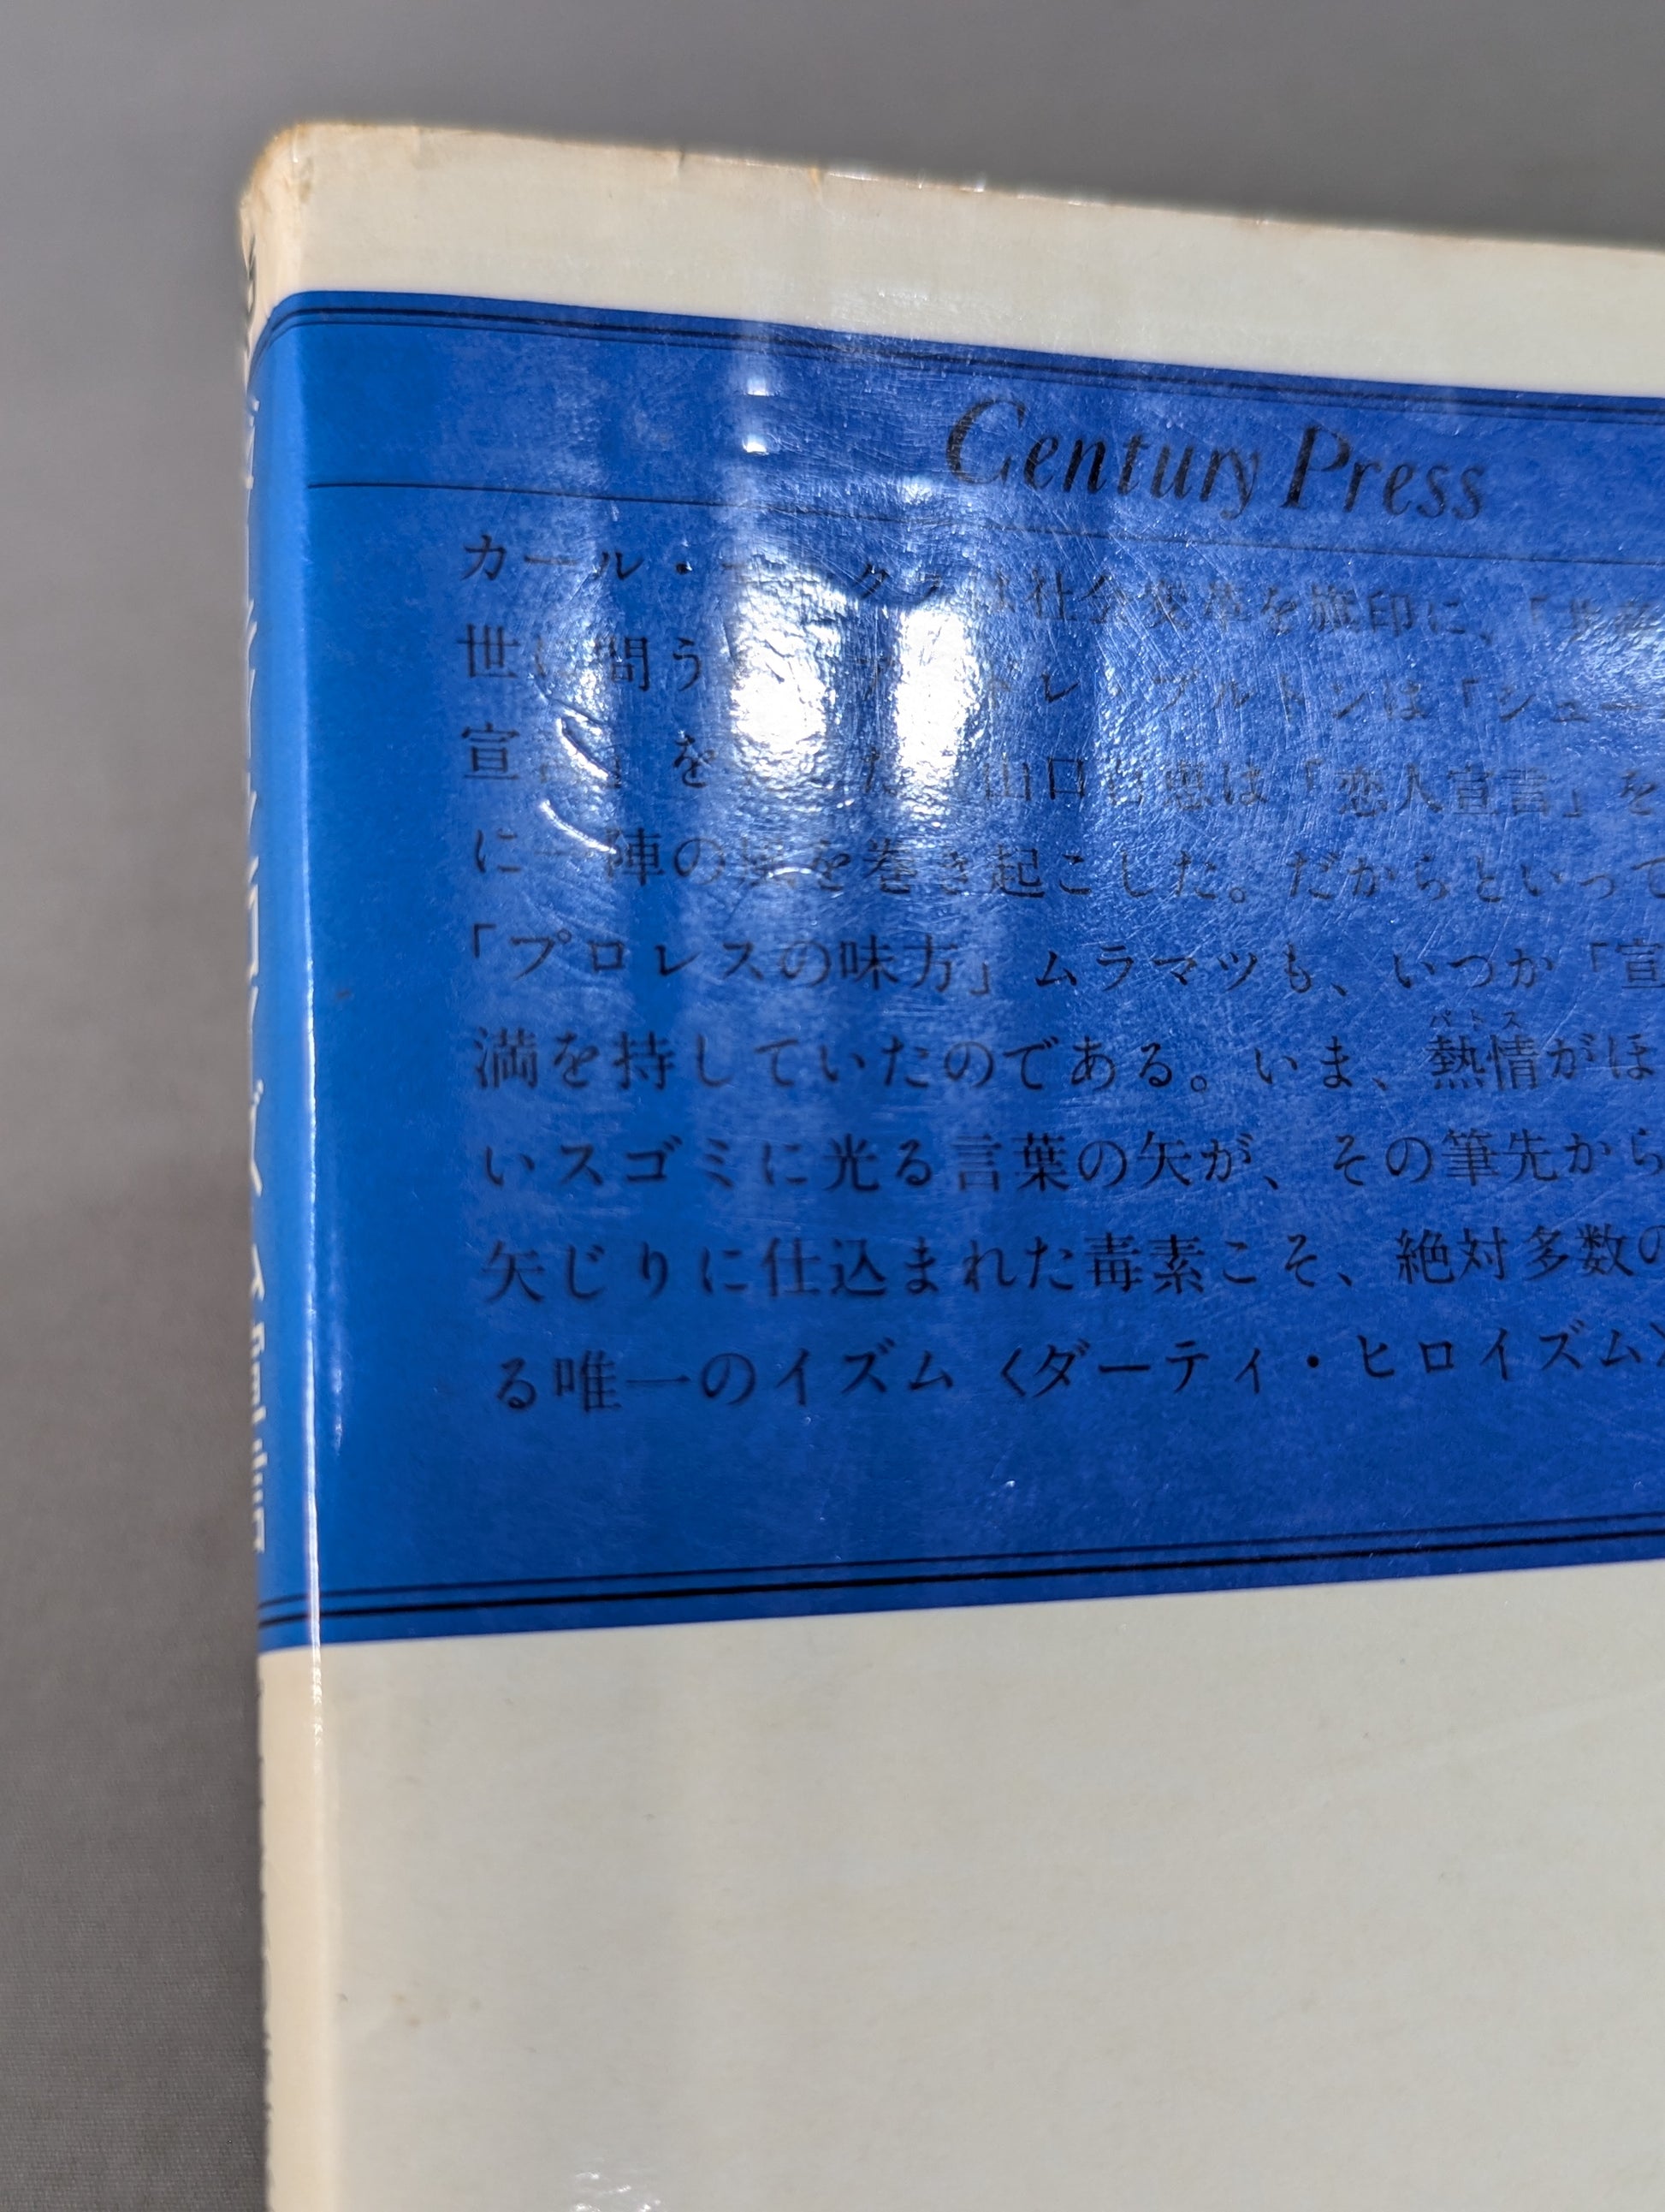 Century Press
カール・ は社会変革を旗印に、「共産
世 問う レ・ブルトンは「シュー
宣 」を た 山口百恵は「恋人宣言」を
に一陣の を巻き起こした。だからといって
「プロレスの味方」ムラマツも、いつか「宣
満を持していたのである。いま、熱情がほ
パトス
いスゴミに光る言葉の矢が、その筆先から
矢じりに仕込まれた毒素こそ、絶対多数の
る唯一のイズム〈ダーティ・ヒロイズム〉